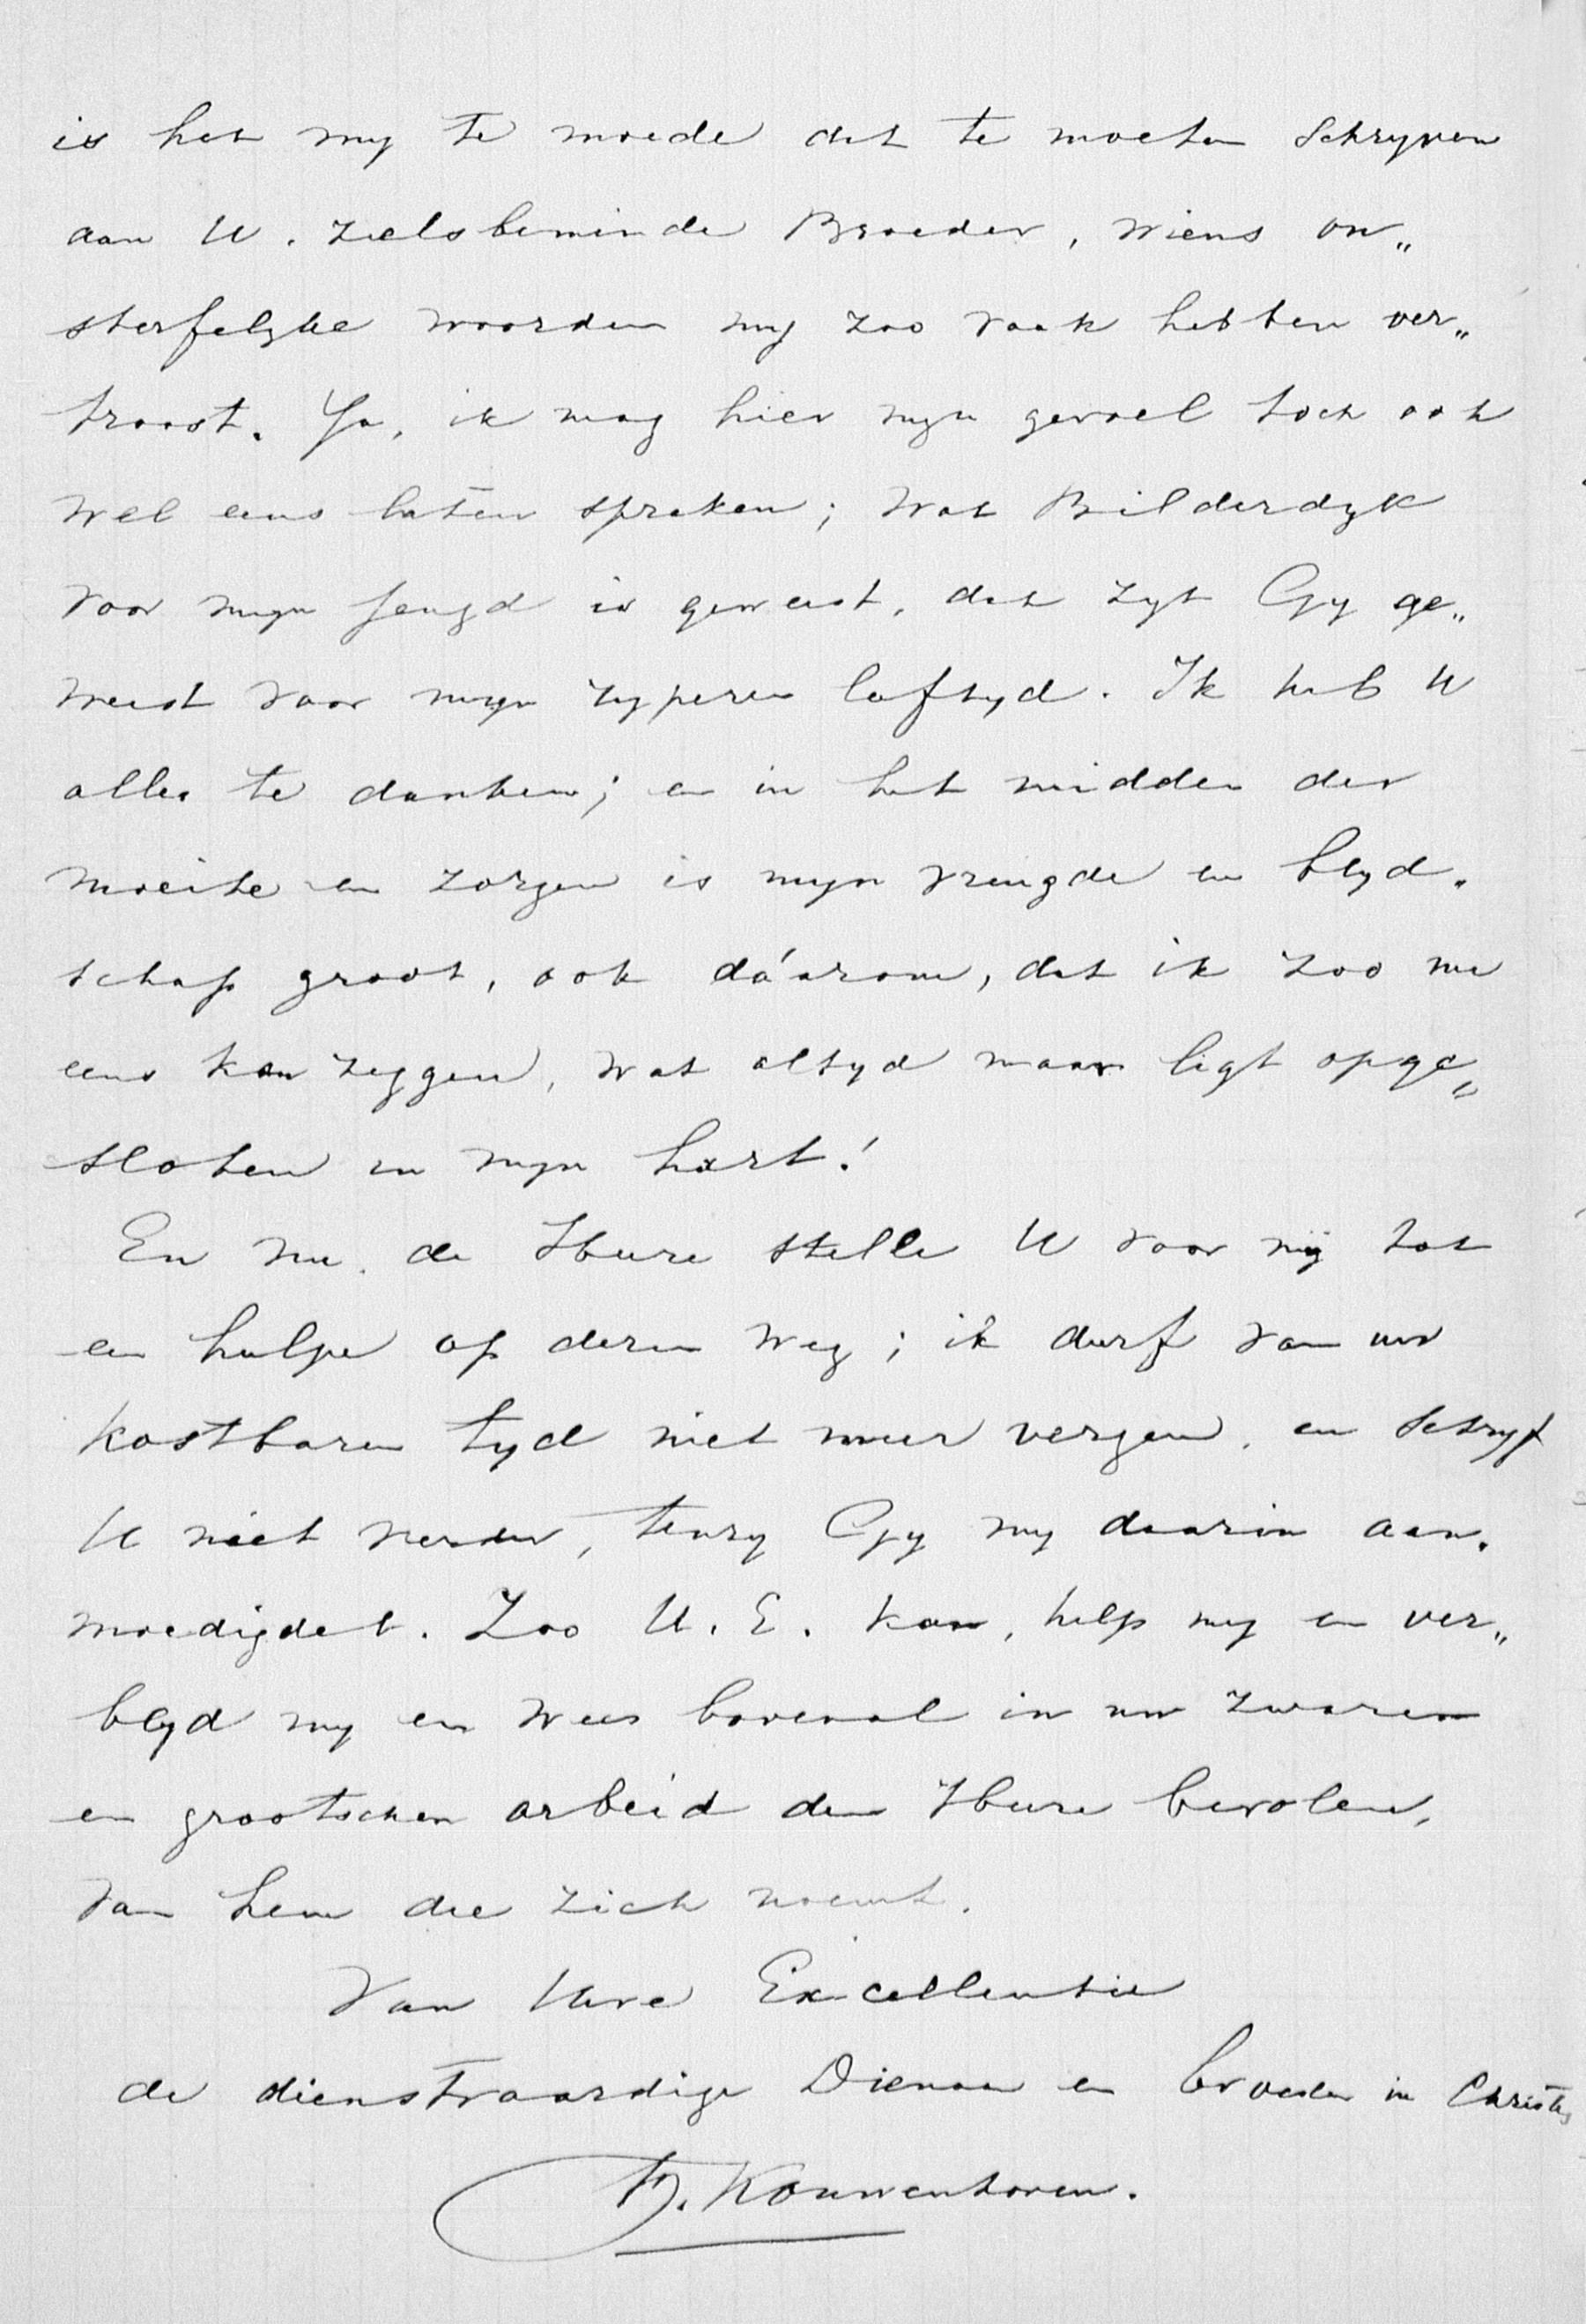 is het my te moede dat te moeten schryven
aan U. zielsbeminde Broeder, wiens on„
sterfelyke woorden my zoo vaak hebben ver„
troost. Ja, ik mag hier myn gevoel toch ook
wel eens laten spreken; wat Bilderdyk
voor myn jeugd is geweest, dat zyt Gy ge„
weest voor myn ryperen leeftyd. Ik heb U
alles te danken; en in het midden der
moeite en zorgen is myn vreugde en blyd.
schap groot, ook dáárom, dat ik zoo nu
eens kan zeggen, wat altyd maar ligt opge„
sloten in myn hart!
En nu. de Heere stelle U voor mij tot
een hulpe op deren weg; ik durf van uw
kostbaren tyd niet meer vergen. en schryf
U niet verder, tenzy Gy my daarin aan.
moedigdet. Zoo U. E. kan, help my en ver„
blyd my en wees bovenal in uw zwaren
en grootschen arbeid den Heere bevolen,
van hem die zich noemt.
Van Uwe Excellentie
de dienstvaardige Dienaar en broeder in Christus
Kouwenhoven.